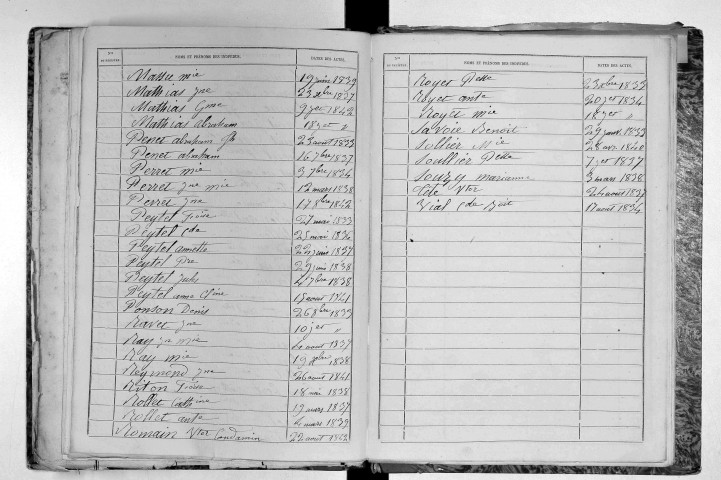 NOMS ET PRÉNOMS DES INDIVIDUS. DATES DES ACTES.
Massu mie 19 1839
Mathias jne 23 xbre 1827
Mathias Gme 9 jer 1842
Mathias abraham 18 jet "
Penet abraham 23 aout 1833
Penet abraham 16 7bre 1837
Perret mie 3 7bre 1834
Perret jne mie 12 mars 1838
Perret jne 17 8bre 1842
Peytel 27 mai 1833
Peytel cde 25 mai 1834
Peytel annette 22 juin 1837
Peytel Pre 29 juin 1838
Peytel jules 4 7bre 1838
Peytel anne 15 aout 1841
Ponson Denis 26 8bre 1833
Ravet jne 10 jer "
Ray jne mie 2 aout 1837
Ray mie 19 1838
Reymond jne 26 aout 1841
Riton 18 mai 1838
Rollet Cathine 19 mars 1837
Rollet ante 2 mars 1839
Romain Vtor Condamin 22 aout 1842
NOMS ET PRÉNOMS DES INDIVIDUS. DATES DES ACTES.
Royet 23 xbre 1833
Royet ante 20 jet 1834
Royet mie 18 jet "
Savoie Benoit 29 janv. 1833
Sollier Mie 28 1840
Soullier 7 jet 1837
Souzy marianne 3 mars 1838
Tête Vtor 24 aout 1837
Vial Cde 17 aout 1834